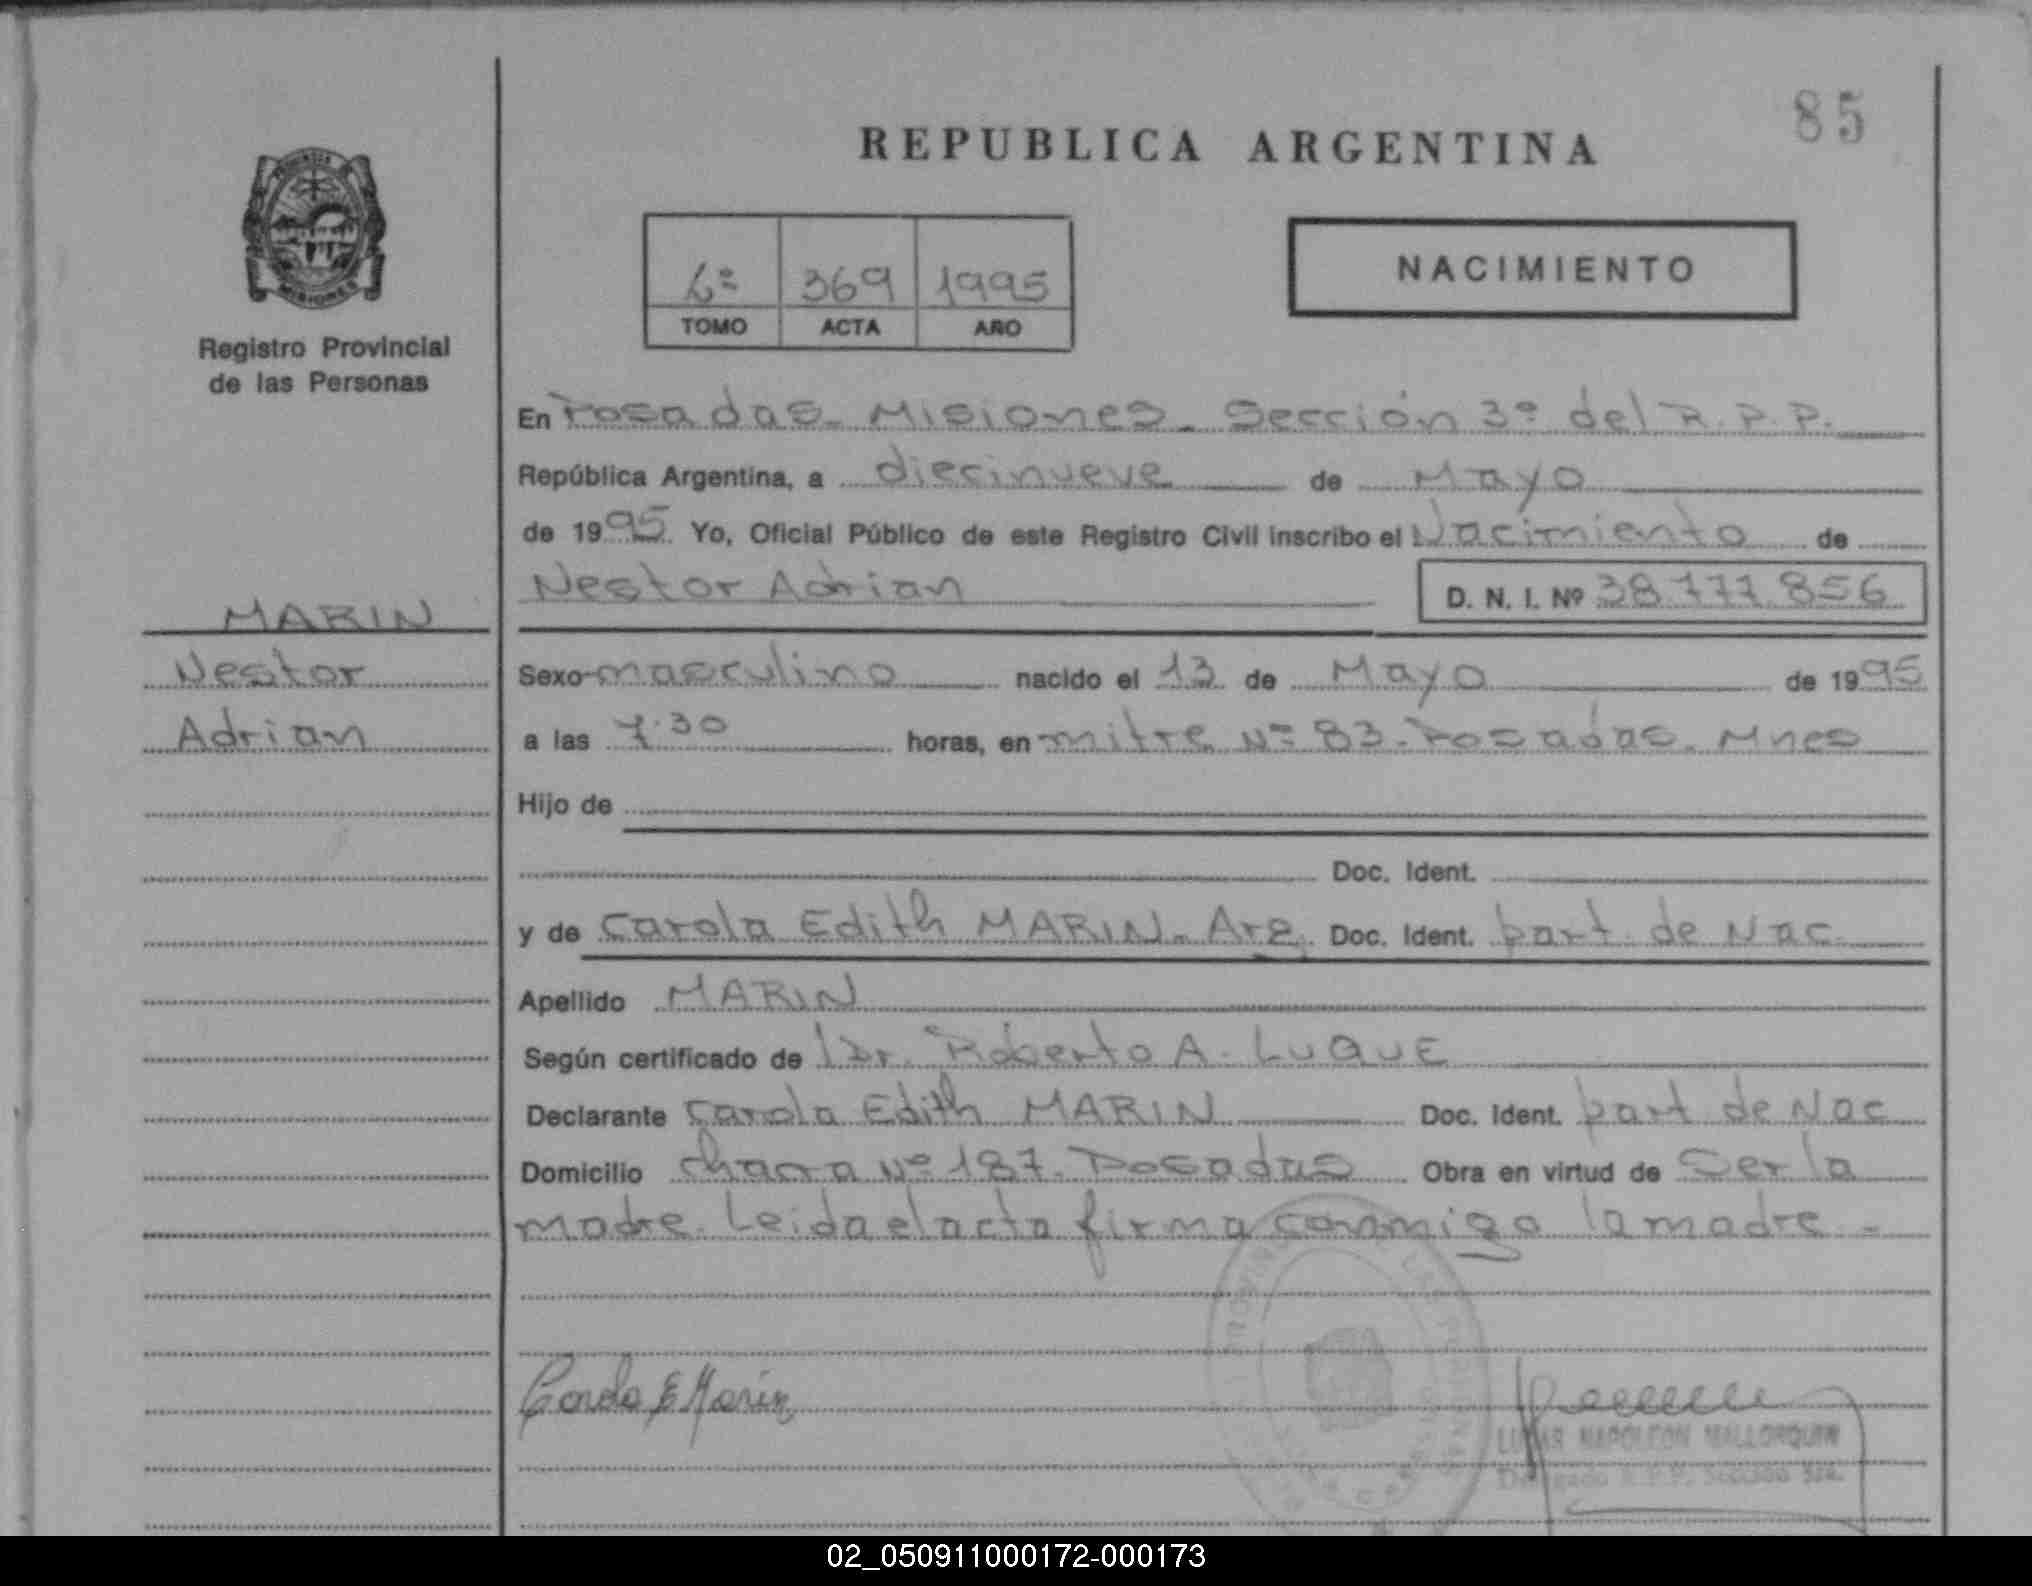 85
REPUBLICA ARGENTINA
MISIONES
Registro Provincial
de las Personas
369 1995
TOMO ACTA AÑO
NACIMIENTO
En Posadas - Misiones - Sección 3º del R.P.P.
República Argentina, a diecinueve de Mayo
de 1995 Yo, Oficial Público de este Registro Civil inscribo el Nacimiento de
Nestor Adrian D. N. I. Nº 38.777.856
MARIN
Nestor
Adrian
Sexo masculino nacido el 13 de Mayo de 1995
a las 7.30 horas, en mitre Nº 83 - Posadas - Mnes
Hijo de
Doc. Ident.
y de Carola Edith MARIN - Arg. Doc. Ident. part de Nac
Apellido MARIN
Según certificado de Dr. Roberto A. LUQUE
Declarante Carola Edith MARIN Doc. Ident. part de Nac
Domicilio chacra Nº 187 - Posadas Obra en virtud de Ser la
madre. Leida el acta firma conmigo la madre -
Carola E Marin
LUCAS NAPOLEON MALLORQUIN
Delegado R.P.P. Sección 3ra.
02_050911000172-000173